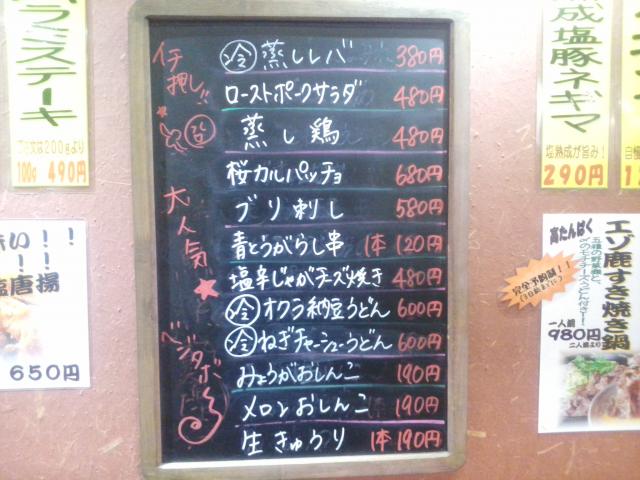 ラミステーキ
ご注文は200gより
100g 490円
!!
!!
塩唐揚
650円
イチ押し!!
大人気★
ベジタボ
冷 蒸しレバ 380円
ローストポークサラダ 480円
蒸し鶏 480円
桜カルパッチョ 680円
ブリ刺し 580円
青とうがらし串 1本120円
塩辛じゃがチーズ焼き 480円
冷 オクラ納豆うどん 600円
冷 ねぎチャーシューうどん 600円
みょうがおしんこ 190円
メロンおしんこ 190円
生きゅうり 1本190円
成塩豚ネギマ
塩熟成が旨み!
290円
高たんぱく
エゾ鹿すき焼き鍋
完全予約制!!
一人鍋
980円
二人鍋より